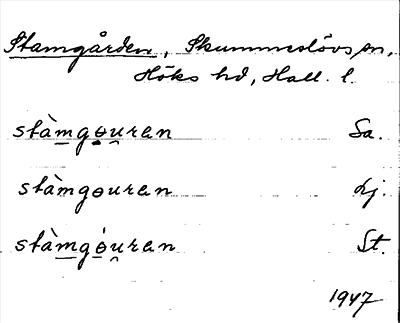 Stamgården, Skummeslövs sn,
Höks hd, Hall. l.
stàmgọu̯ren Sa.
stàmgouren Lj.
stàmgóu̯ren St.
1947